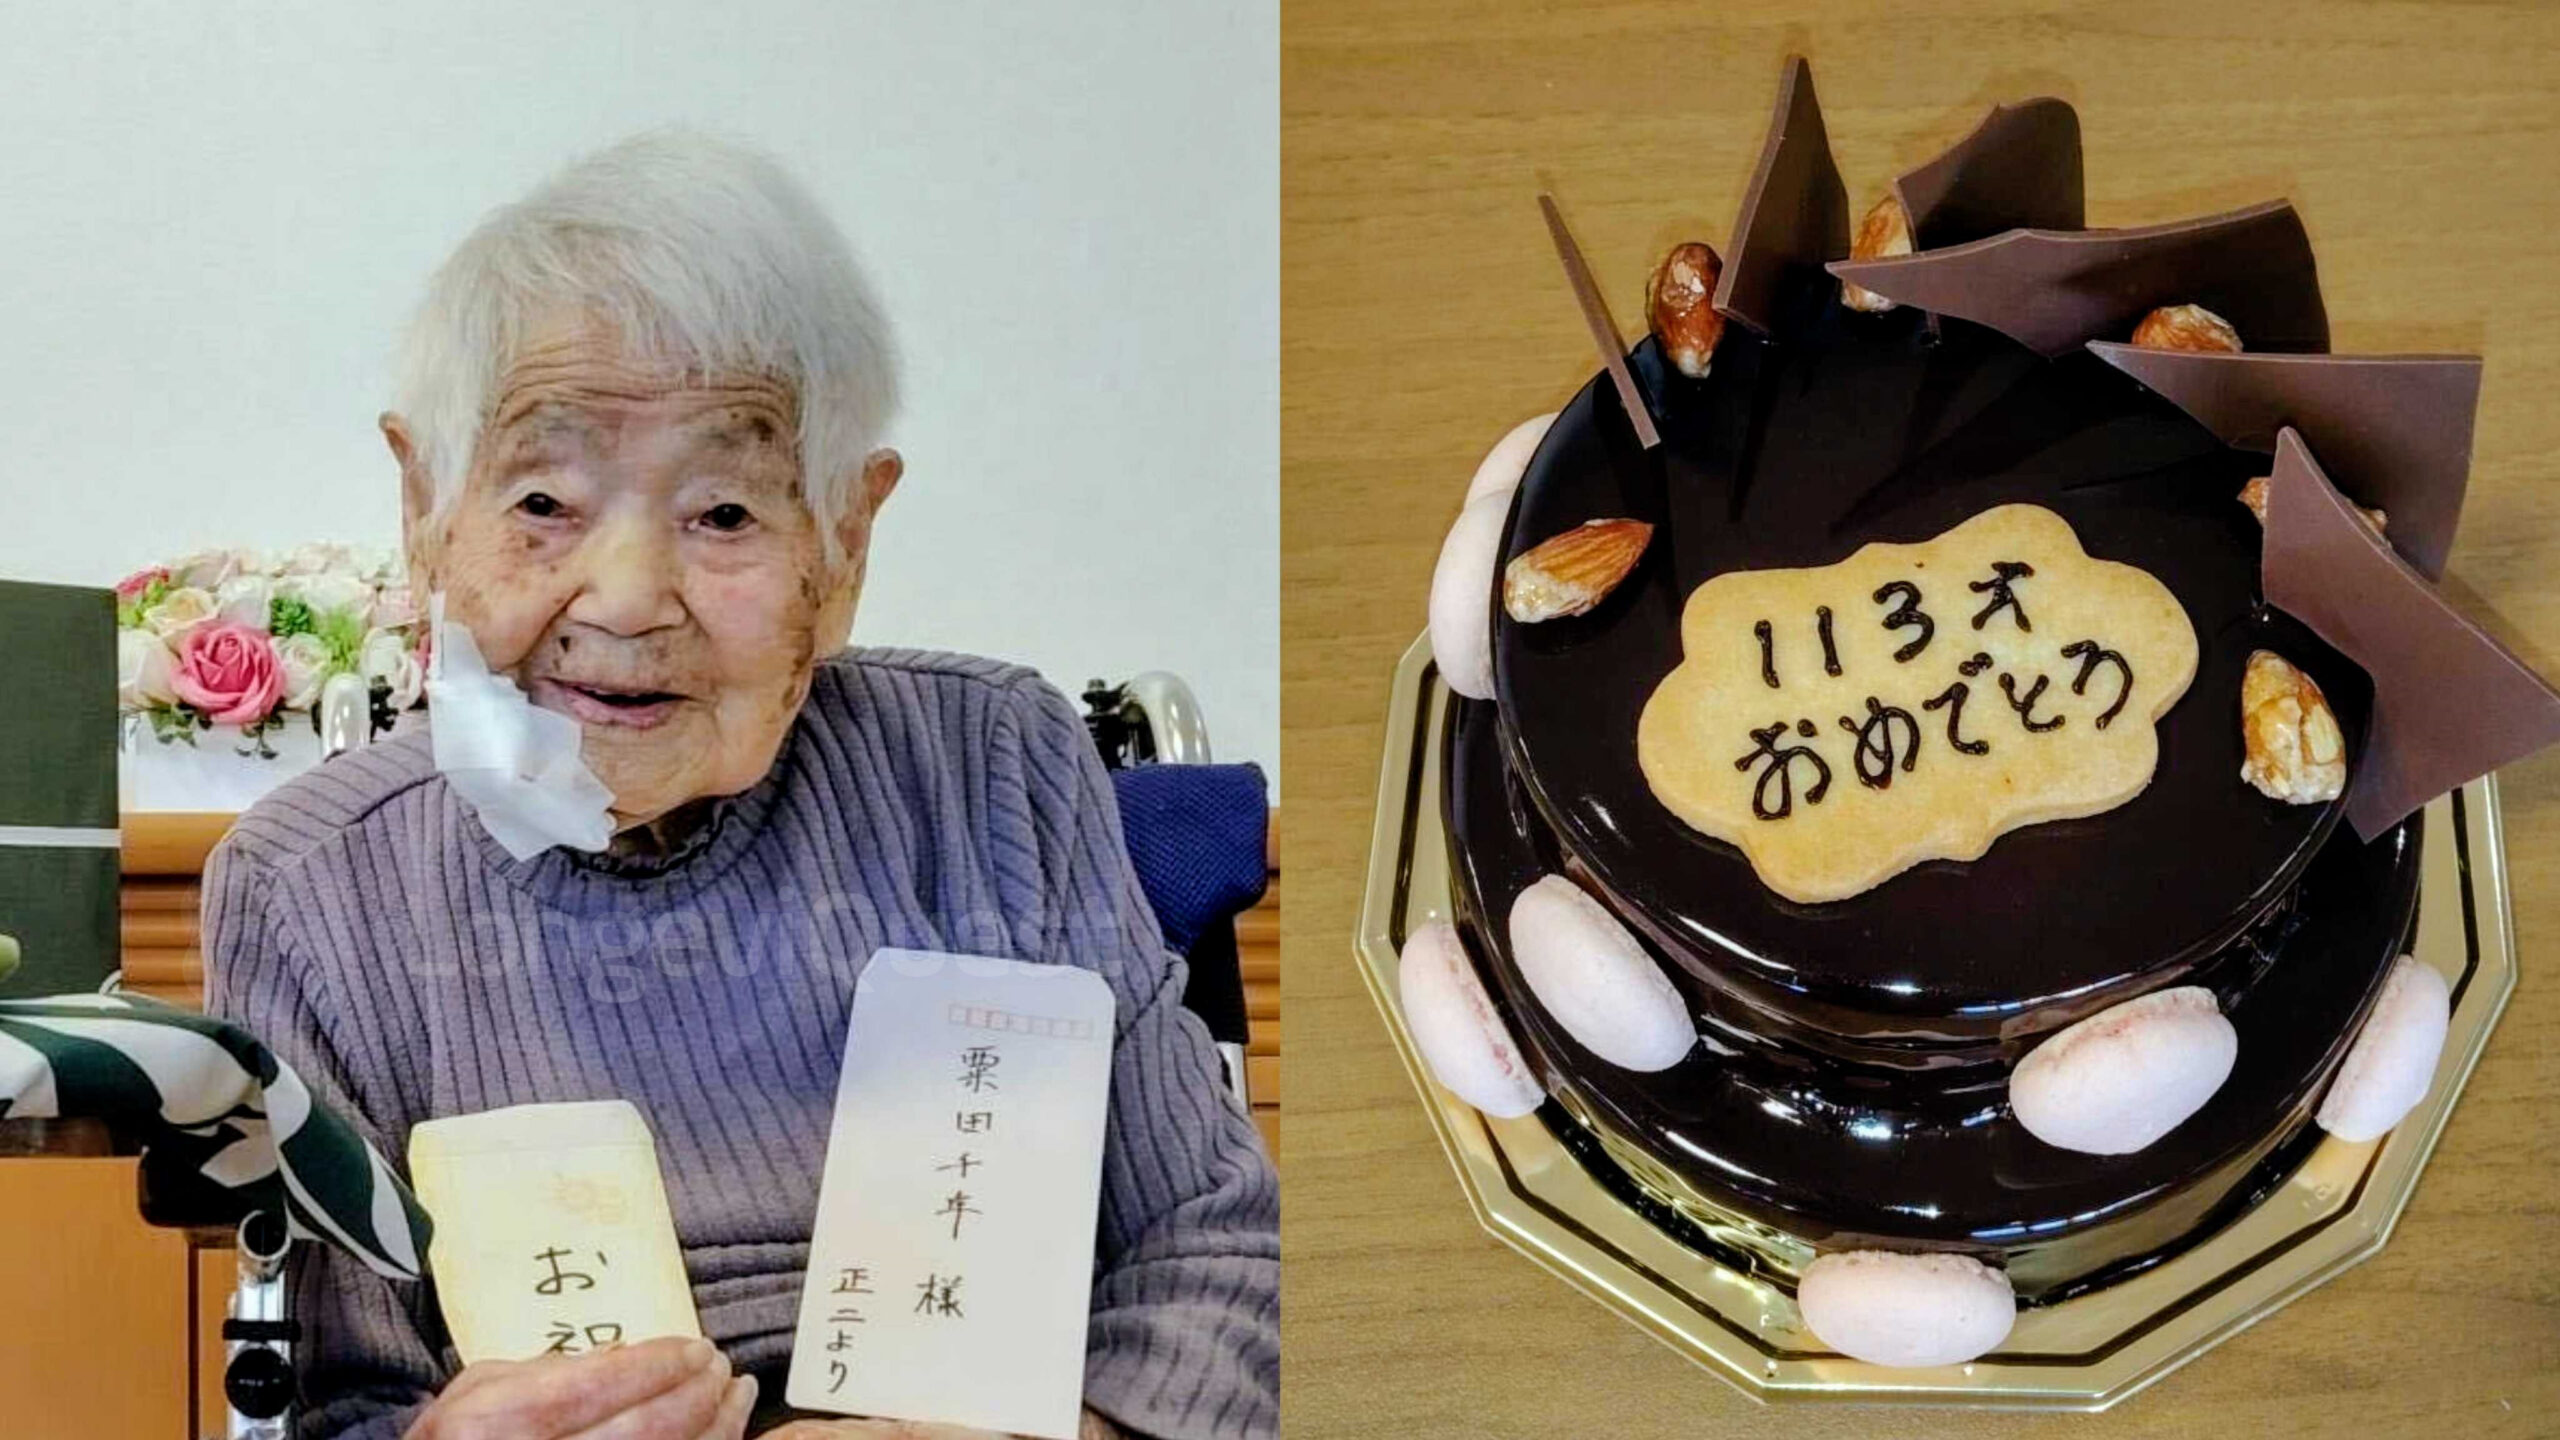 LongeviQuest
お祝
粟田千年 様
正二より
113才
おめでとう